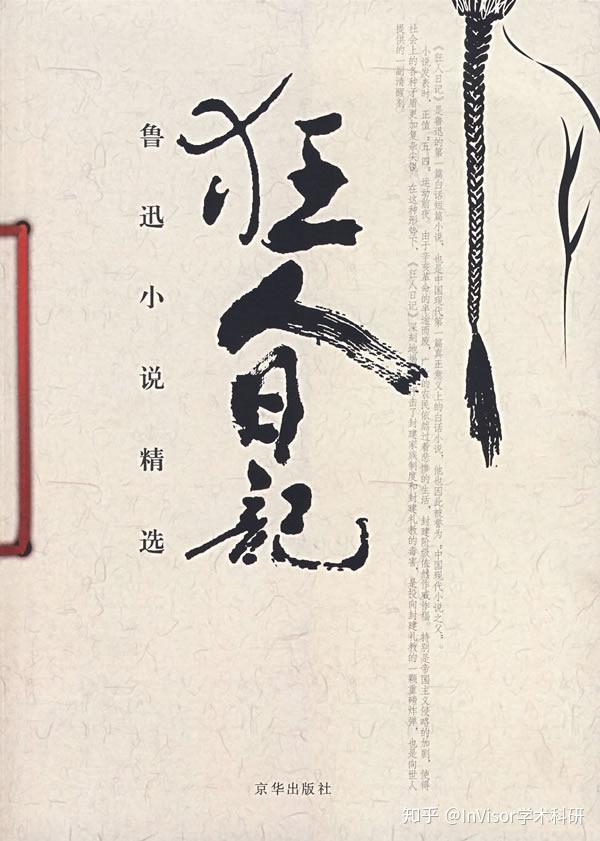 狂人日記
鲁迅小说精选
《狂人日记》是鲁迅的第一篇白话短篇小说，也是中国现代第一篇真正意义上的白话小说，他也因此被誉为“中国现代小说之父”。
小说发表时，正值“五·四”运动前夜。由于辛亥革命的半途而废，广的农民依然过着悲惨的生活，封建阶级依然作威作福。特别是帝国主义侵略的加剧，使得
社会上的各种矛盾更加复杂尖锐。在这种形势下，《狂人日记》深刻地击了封建家族制度和封建礼教的毒害，是投向封建礼教的一颗重磅炸弹，也是向世人
提供的一副清醒剂。
京华出版社
知乎 @InVisor学术科研